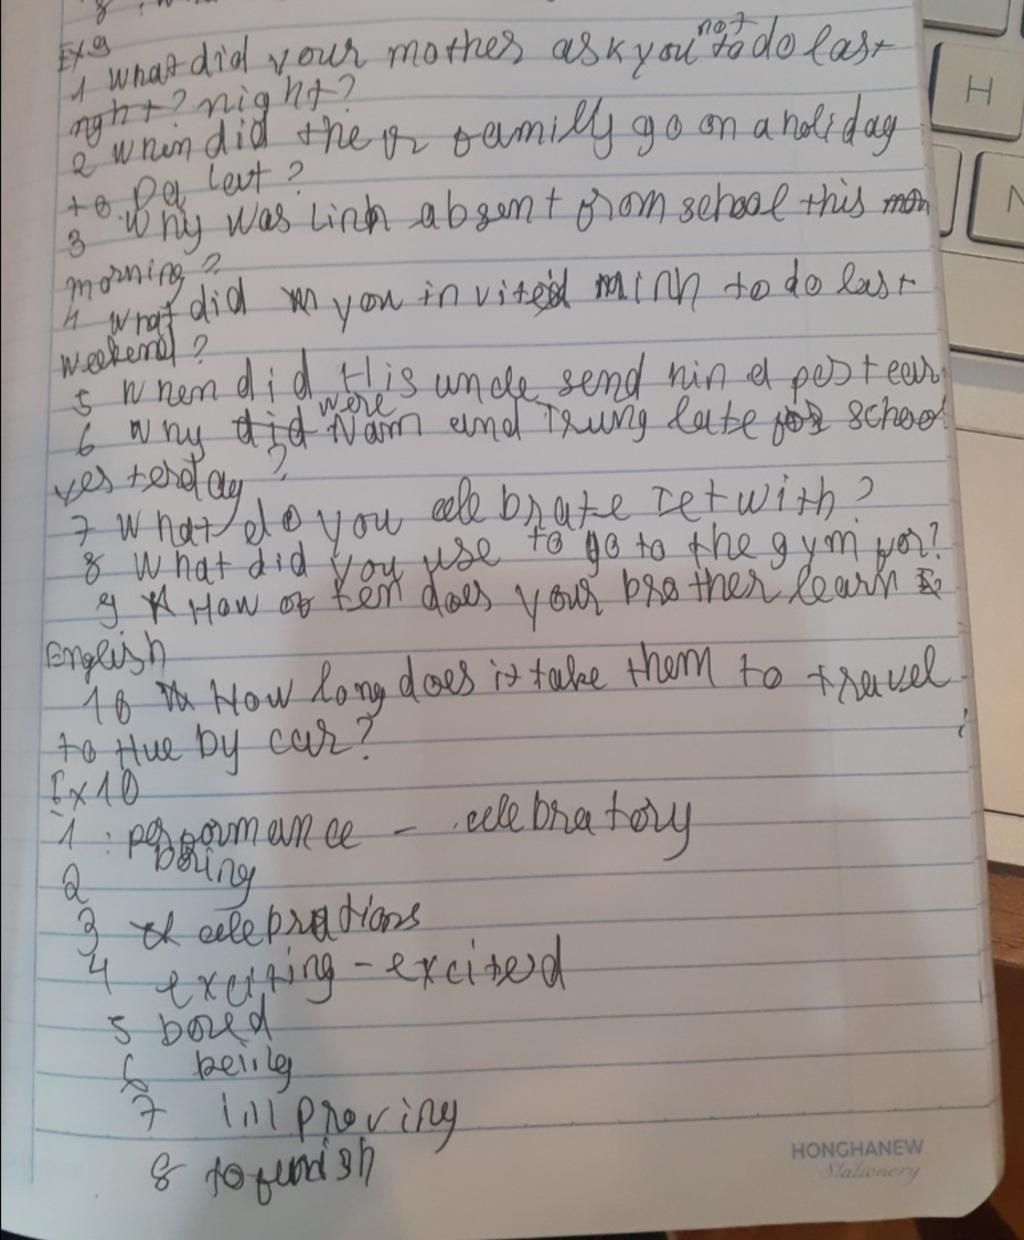 Ex9
1 What did your mother ask you not to do last
night? night?
2 When did the family go on a holiday
to Da lat?
3 Why was Linh absent from school this mon
morning?
4 What did you invited Minh to do last
weekend?
5 When did His uncle send him a postcar
6 Why did were Nam and Trung late for school
yesterday?
7 What do you celebrate Tet with?
8 What did you use to go to the gym for?
9 How often does your brother learn
English
10 How long does it take them to travel
to Hue by car?
Ex10
1: performance - celebratory
2 boring
3 celebrations
4 exciting - excited
5 bored
6 being
7 improving
8 to furnish
HONGHANEW
Stationery
H
N